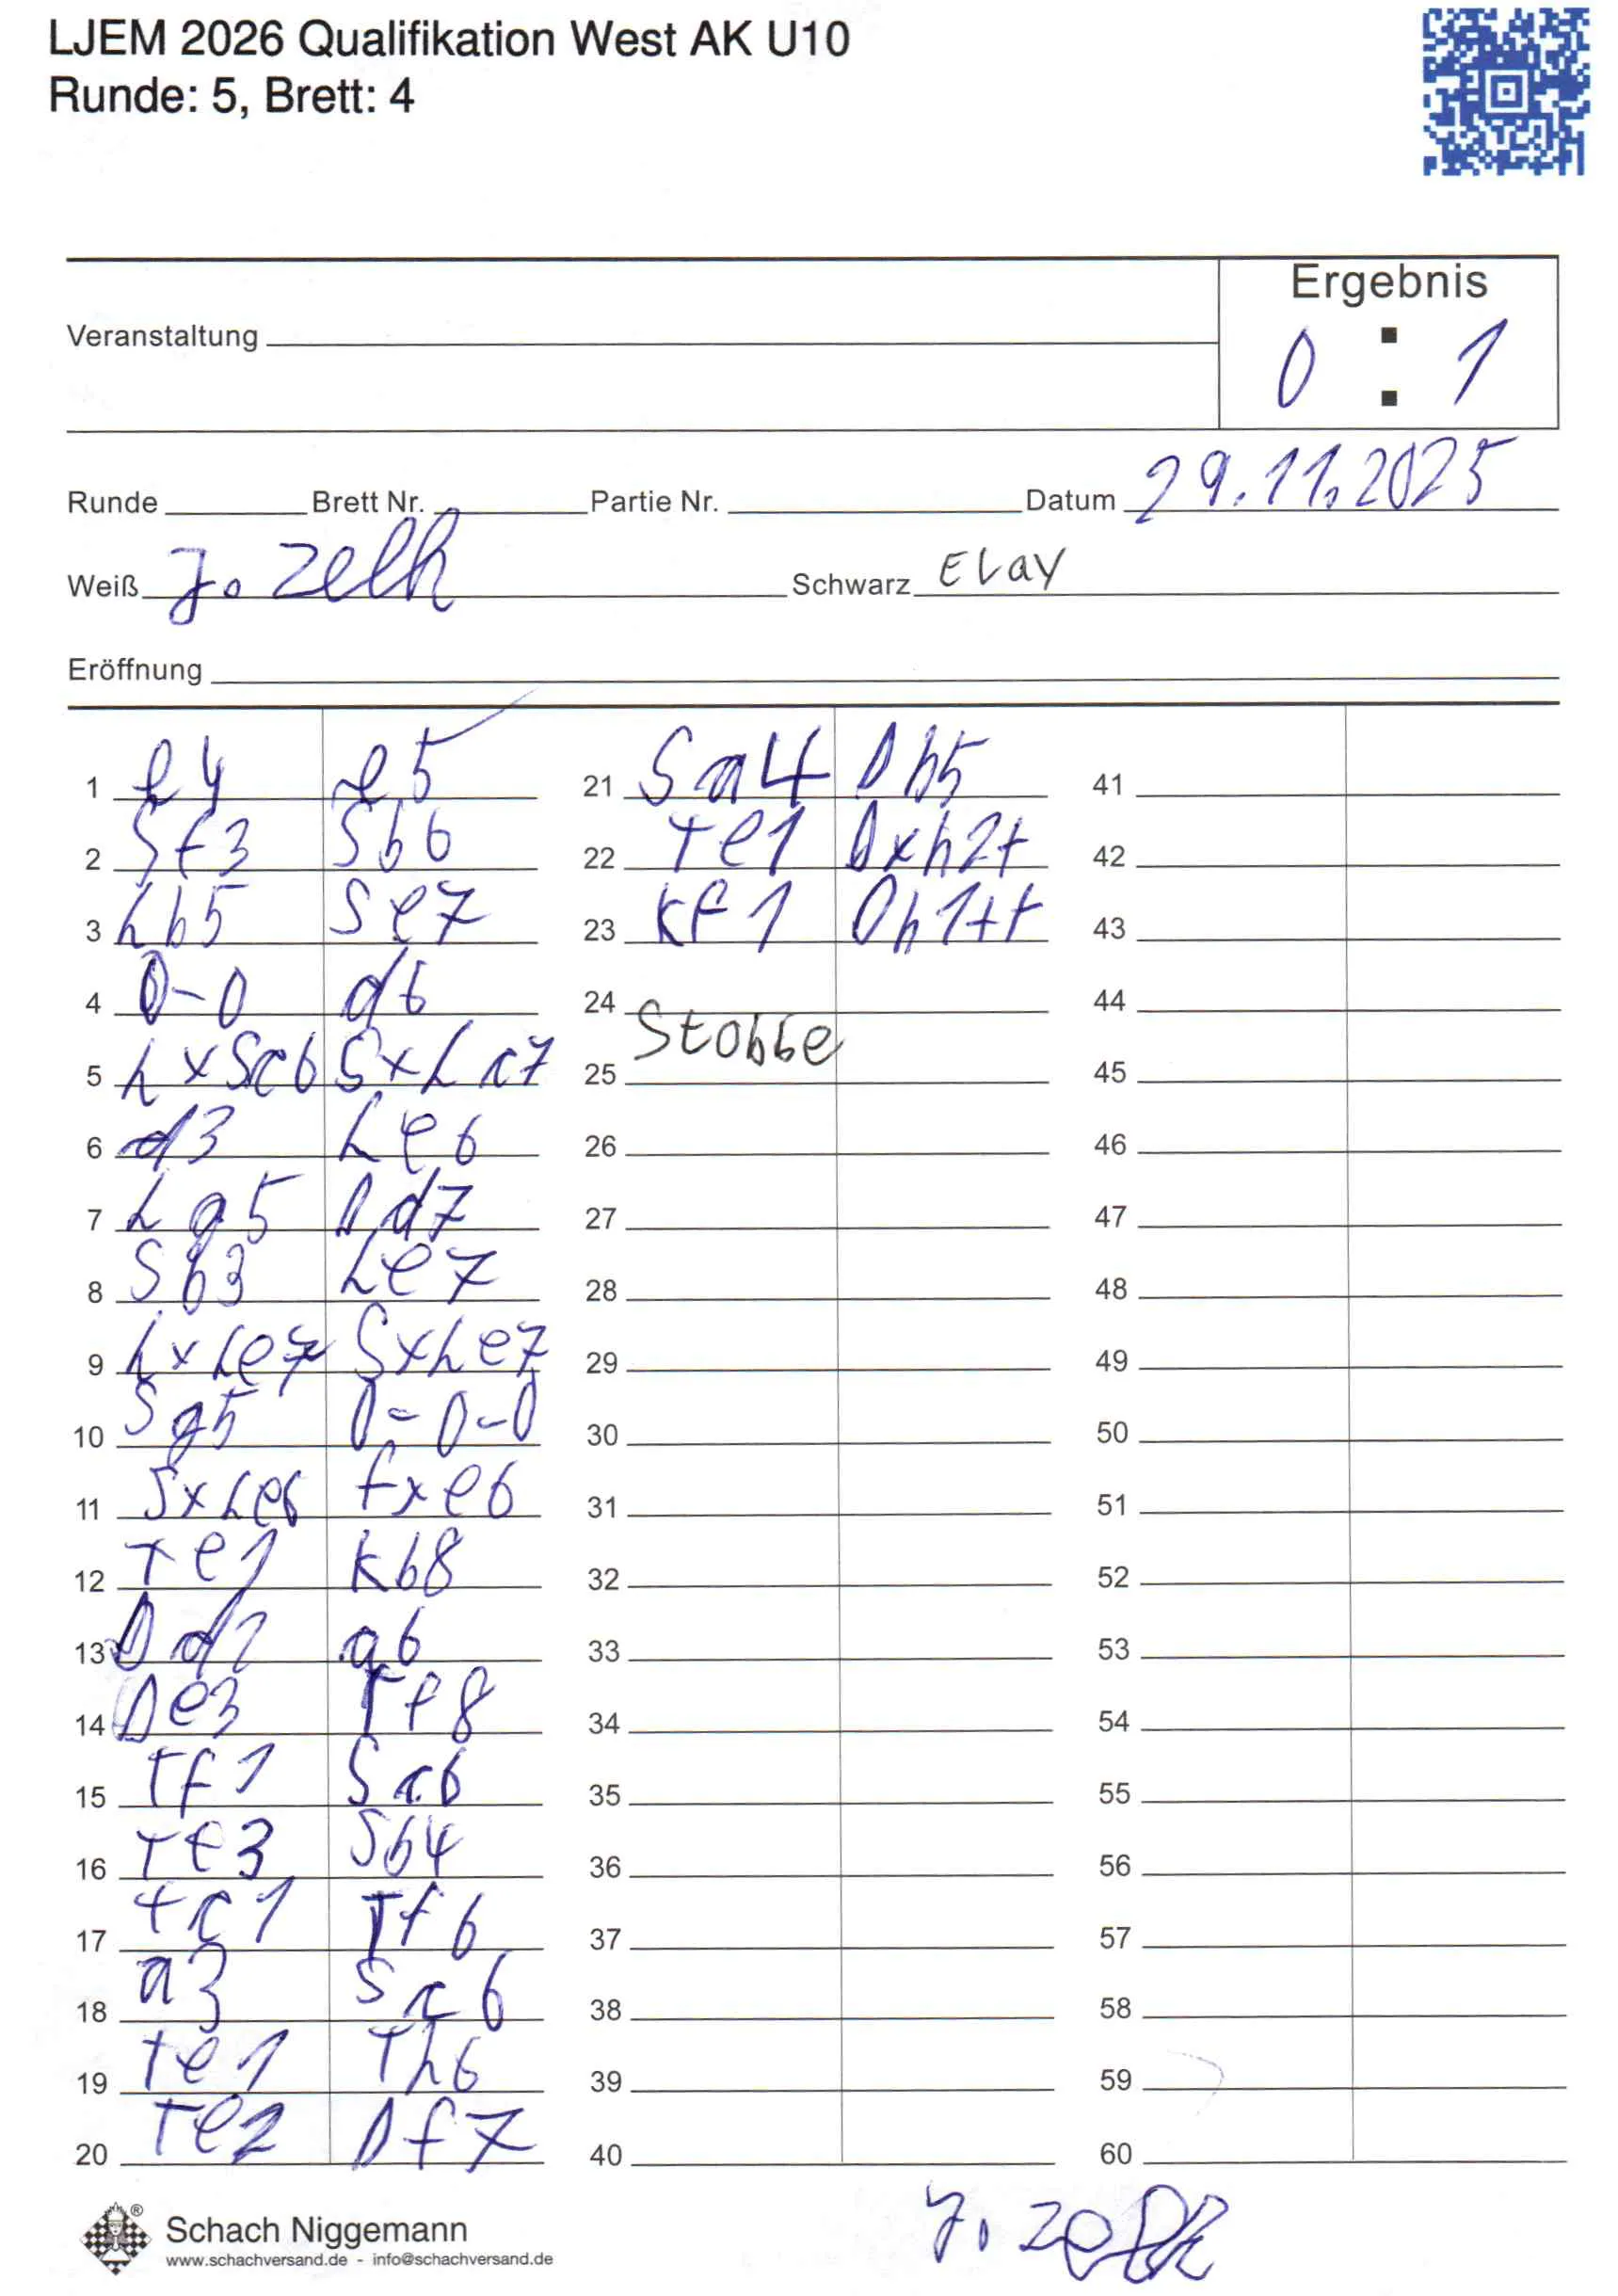 LJEM 2026 Qualifikation West AK U10
Runde: 5, Brett: 4
Ergebnis
Veranstaltung
0 : 1
Runde Brett Nr. Partie Nr. Datum 29.11.2025
Weiß J. Zelk Schwarz Elay
Eröffnung
1 e4 e5
2 Sf3 Sb6
3 Lb5 Se7
4 0-0 d6
5 LxSc6 SxLc7
6 d3 Le6
7 Lg5 Dd7
8 Sb3 Le7
9 LxLe7 SxLe7
10 Sg5 0-0-0
11 SxLe6 fxe6
12 Te1 Kb8
13 Dd2 a6
14 De3 Tf8
15 Tf1 Sc6
16 Te3 Sb4
17 Tc1 Tf6
18 a3 Sc6
19 Te1 Th6
20 Te2 Df7
21 Sa4 Dh5
22 Te1 Dxh2+
23 Kf1 Dh1++
24 Stobbe
25
26
27
28
29
30
31
32
33
34
35
36
37
38
39
40
41
42
43
44
45
46
47
48
49
50
51
52
53
54
55
56
57
58
59
60
J. Zelk
Schach Niggemann
www.schachversand.de - info@schachversand.de